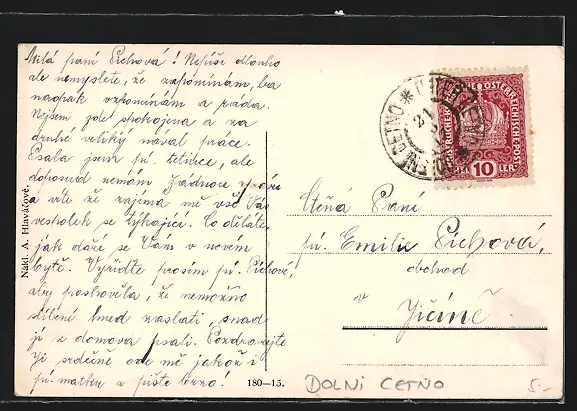 Milá paní Píchová! Nepíši dlouho
ale nemyslete, že zapomínám, ba
naopak vzpomínám a ráda.
Nejsem zde spokojena a za
druhé veliký nával práce.
Psala jsem sl. tetince, ale
doposud nemám žádnou zprávu
a víte že zajímá mě vše Vás
vespolek se týkající. Co děláte,
jak daří se Vám v novém
bytě. Vyřiďte prosím sl. Píchové,
aby poshověla, že nemožno
slíbení hned zaslati, snad
jí z domova psali. Pozdravujte
ji srdečně ode mě jakož i
sl. matku a pište brzo!
Nákl. A. Hlaváčové.
180—15.
DOLNI CETNO
5.-
ÖSTERREICHISCHE POST
10
HELLER
CETNO
Ctěná Paní
Emilie Píchová,
obchod
v Jičíně